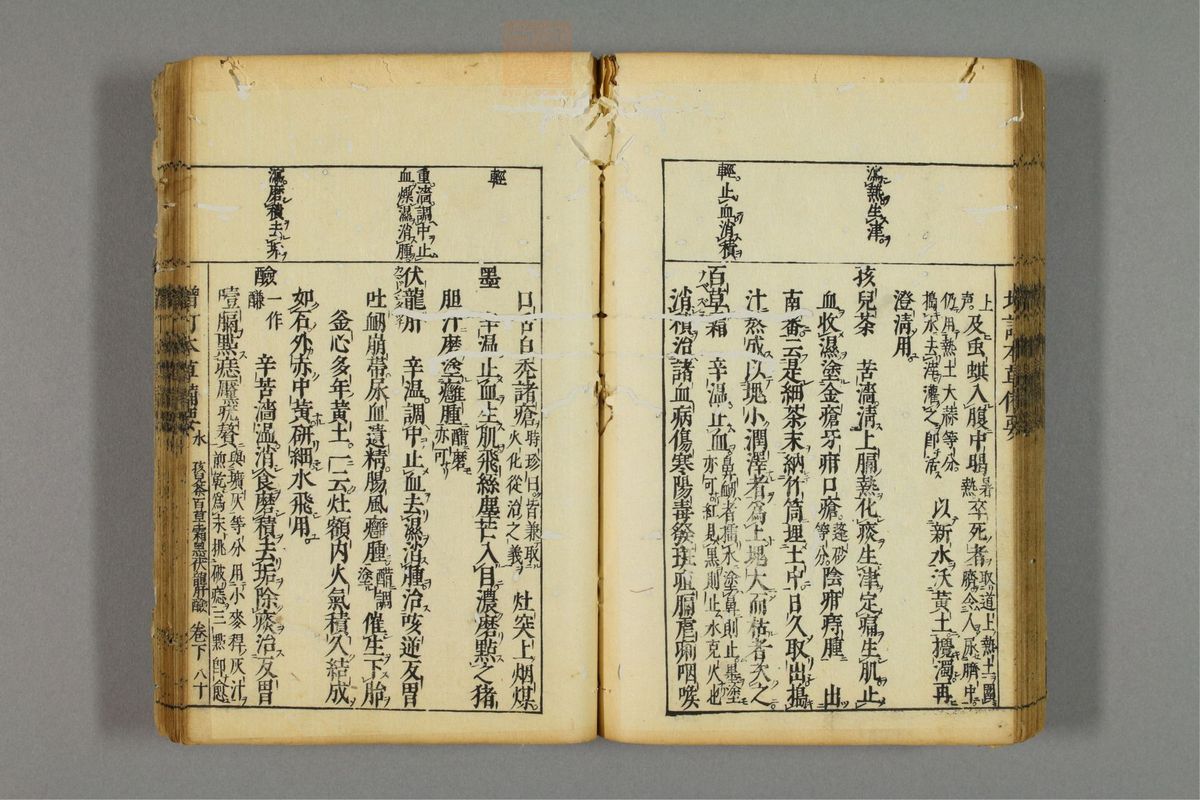 瀉熱生津
輕止血消積
上
及虫蟻入腹中暍暑熱卒死者取道上熱土圍臍令人尿臍中
仍用熱土大蒜等分搗水去滓灌之即活 以新水沃黃土攪濁再
澄清用
孩兒茶 苦濇清上膈熱化痰生津定痛生肌止
血收濕塗金瘡牙疳口瘡蓬砂等分陰疳痔腫 出
南番云是細茶末納竹筒埋土中日久取出搗
汁熬成以塊小潤澤者為上塊大而枯者次之
百草霜 辛溫止血鼻衄者擂水塗鼻則止塗亦可紅見黑則止水克火也
消積治諸血病傷寒陽毒發斑疽膈瘧痢咽喉
輕
重濇調中止血燥濕消腫
瀉磨積去垢
口舌白禿諸瘡時珍曰皆兼取火化從治之義 灶突上烟煤
墨 辛溫止血生肌飛絲塵芒入目濃磨點之猪
胆汁磨塗癰腫醋磨亦可
伏龍肝 辛溫調中止血去濕消腫治咳逆反胃
吐衄崩帶尿血遺精腸風癰腫醋調塗催生下胎
釜心多年黃土一云灶額內火氣積久結成
如石外赤中黃研細水飛用
鹼一作鹻 辛苦濇溫消食磨積去垢除痰治反胃
噎膈點痣黶疣贅與壙灰等分用小麥稈灰汁煎乾為末挑破痣三點即愈
增訂本草備要 水 孩兒茶百草霜墨伏龍肝鹼 卷下 八十